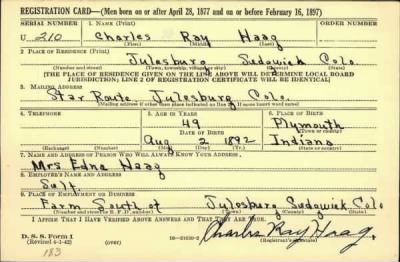 REGISTRATION CARD—(Men born on or after April 28, 1877 and on or before February 16, 1897)
SERIAL NUMBER 1. NAME (Print) ORDER NUMBER
U 210 Charles Ray Haag
(First) (Middle) (Last)
2. PLACE OF RESIDENCE (Print)
Julesburg Sedgwick Colo.
(Number and street) (Town, township, village, or city) (County) (State)
[THE PLACE OF RESIDENCE GIVEN ON THE LINE ABOVE WILL DETERMINE LOCAL BOARD
JURISDICTION; LINE 2 OF REGISTRATION CERTIFICATE WILL BE IDENTICAL]
3. MAILING ADDRESS
Star Route Julesburg Colo.
[Mailing address if other than place indicated on line 2. If same insert word same]
4. TELEPHONE 5. AGE IN YEARS 6. PLACE OF BIRTH
49 Plymouth
DATE OF BIRTH (Town or county)
Aug 2 1892 Indiana
(Exchange) (Number) (Mo.) (Day) (Yr.) (State or country)
7. NAME AND ADDRESS OF PERSON WHO WILL ALWAYS KNOW YOUR ADDRESS
Mrs Edna Haag
8. EMPLOYER'S NAME AND ADDRESS
Self
9. PLACE OF EMPLOYMENT OR BUSINESS
Farm South of Julesburg Sedgwick Colo
(Number and street or R. F. D. number) (Town) (County) (State)
I AFFIRM THAT I HAVE VERIFIED ABOVE ANSWERS AND THAT THEY ARE TRUE.
D. S. S. Form 1
(Revised 4-1-42) (over) Charles Ray Haag
(Registrant's signature)
183